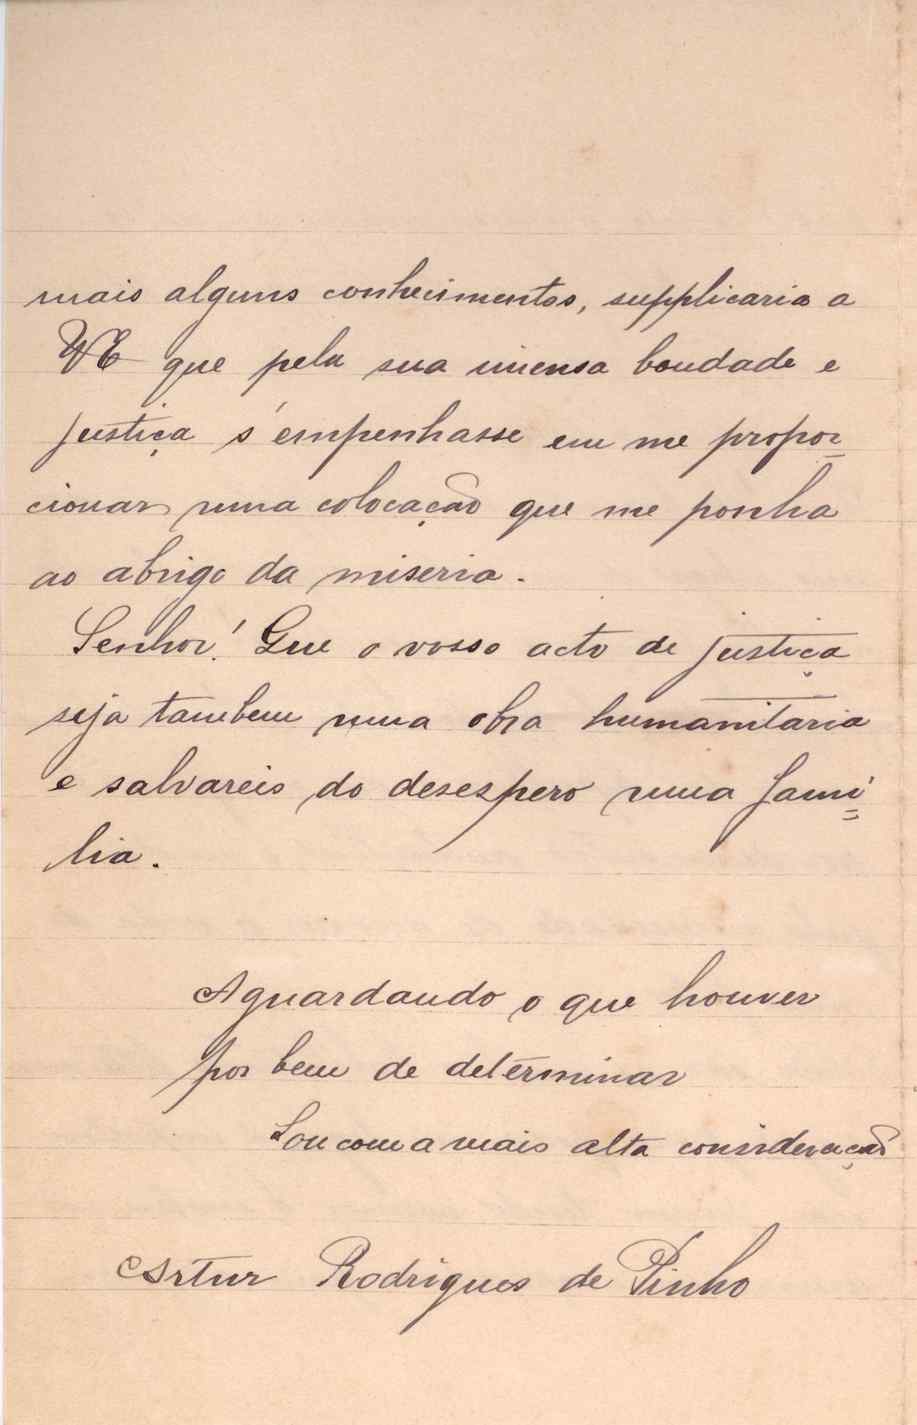 mais alguns conhecimentos, supplicaria a
VE que pela sua imensa bondade e
justiça s'empenhasse em me propor=
cionar uma colocação que me ponha
ao abrigo da miseria.
Senhor! Que o vosso acto de justiça
seja tambem uma obra humanitaria
e salvareis do desespero uma fami=
lia.
Aguardando o que houver
por bem de determinar
Sou com a mais alta consideração
Artur Rodrigues de Pinho